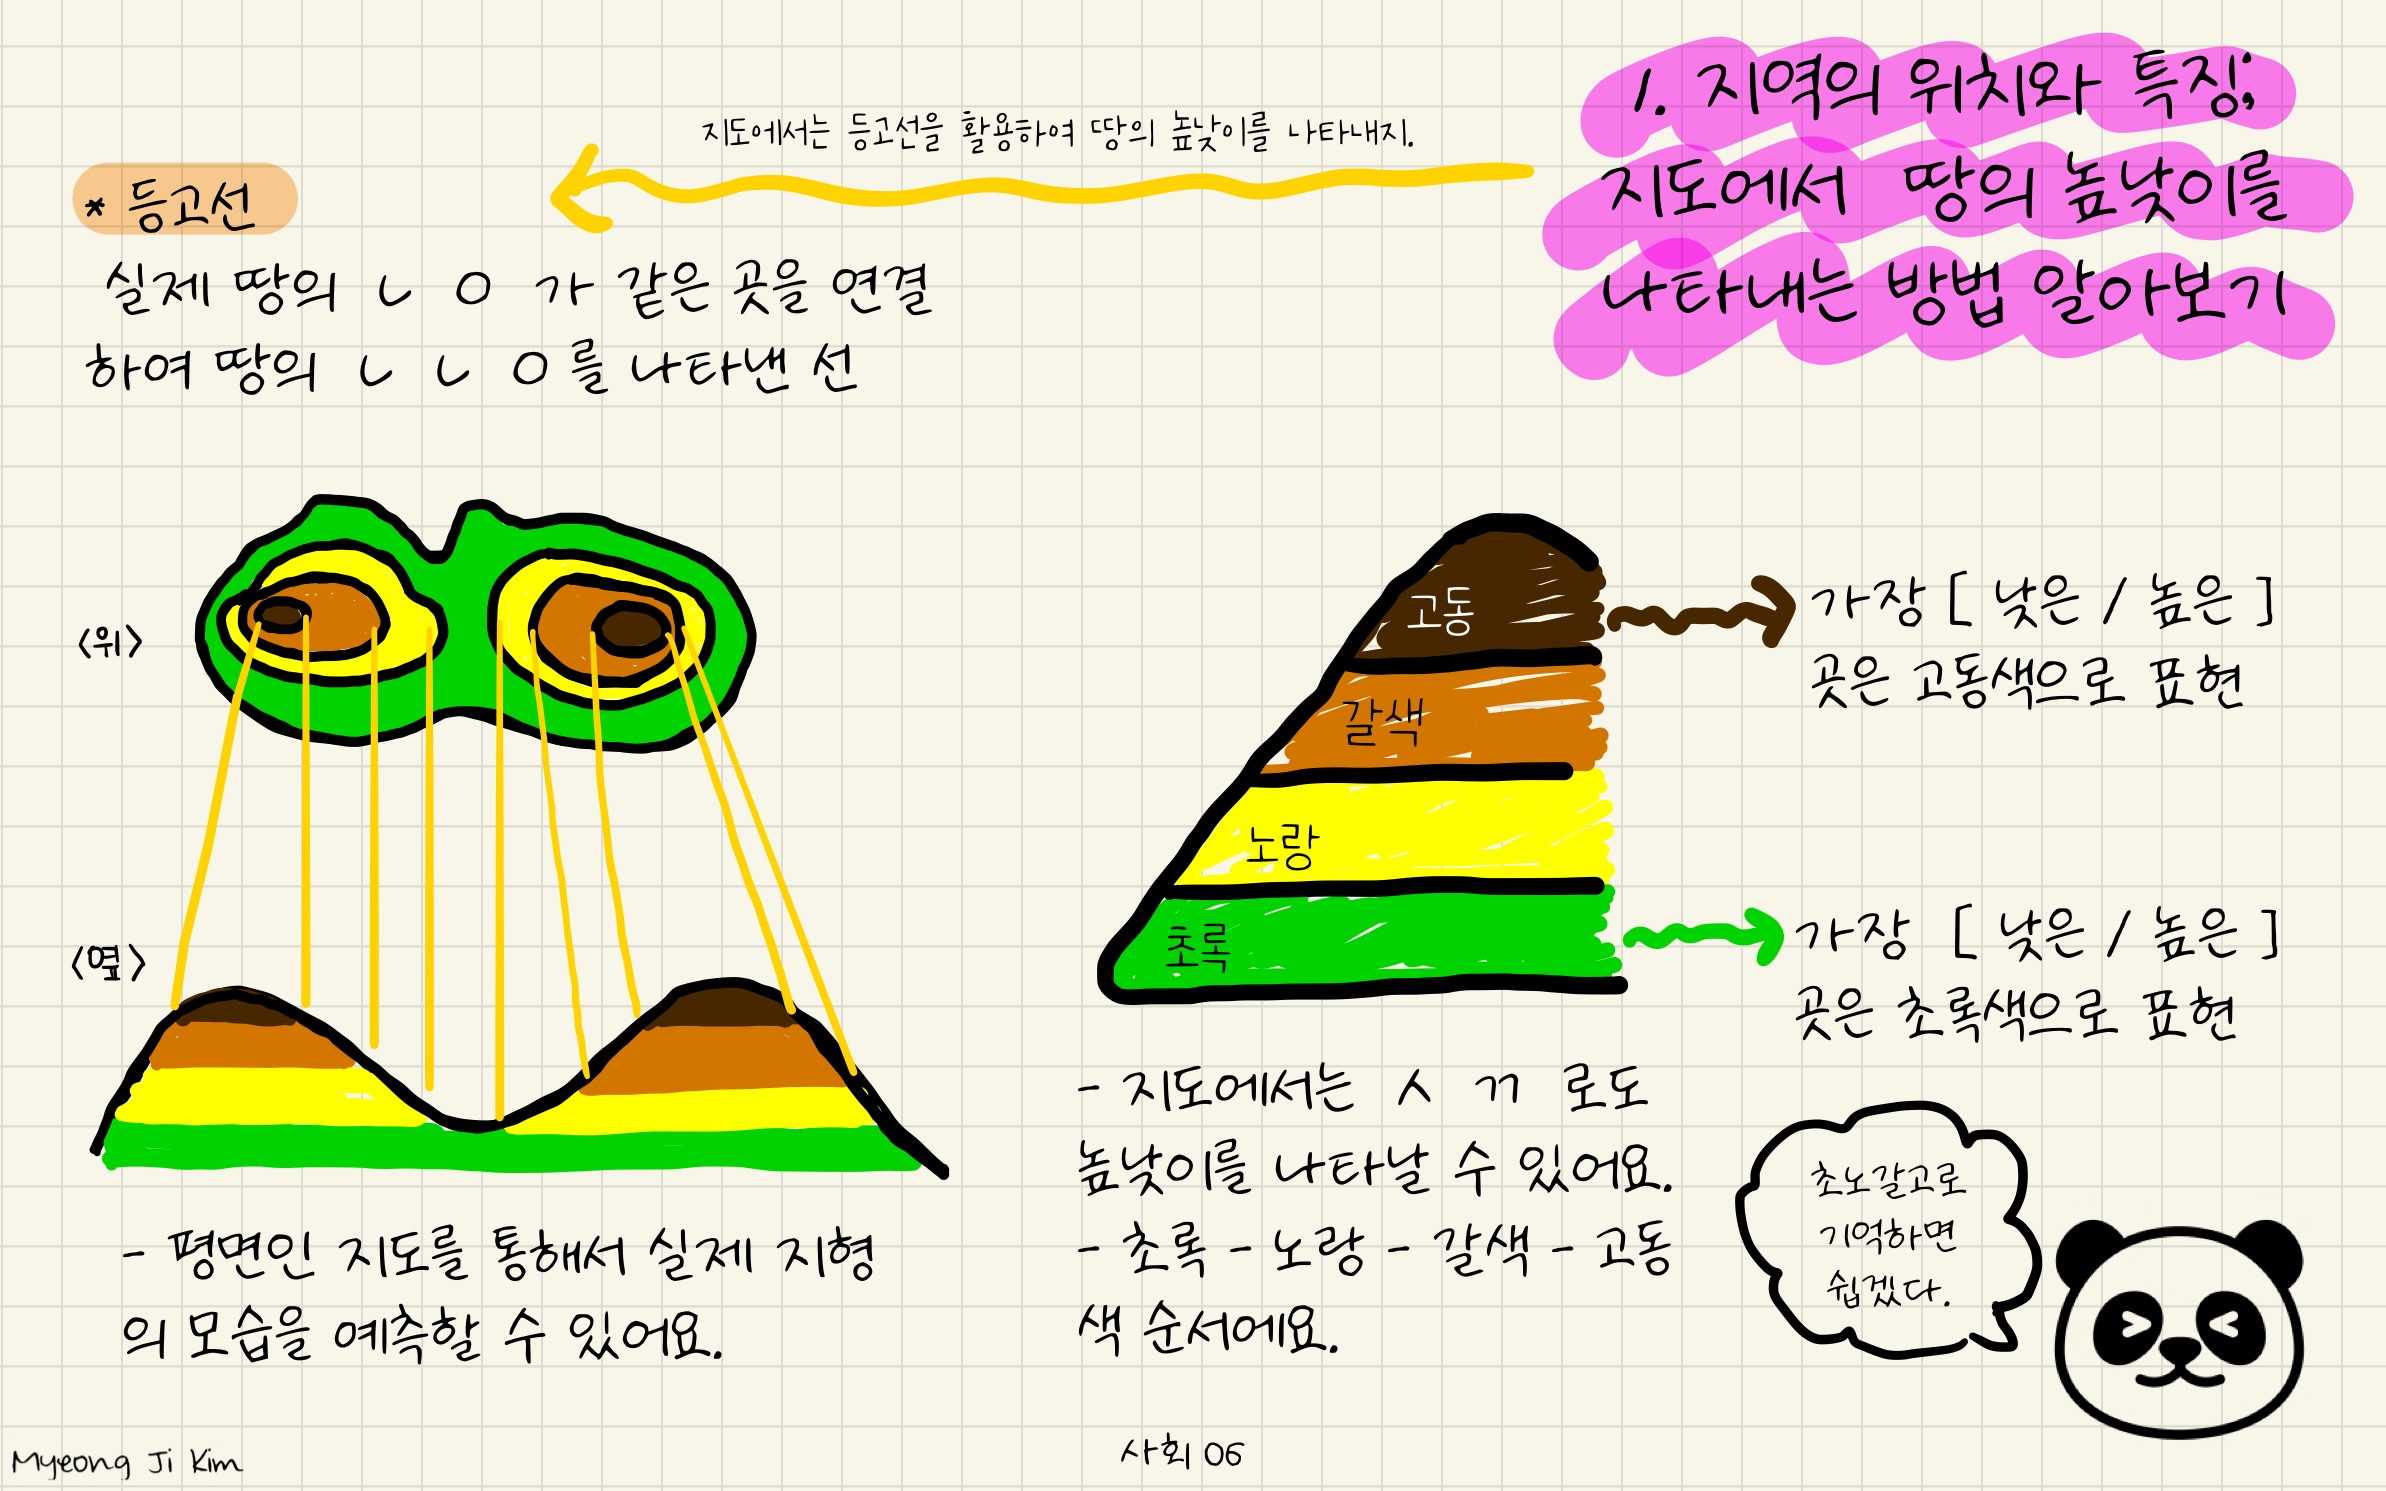 1. 지역의 위치와 특징;
지도에서 땅의 높낮이를
나타내는 방법 알아보기
지도에서는 등고선을 활용하여 땅의 높낮이를 나타내지.
* 등고선
실제 땅의 ㄴ ㅇ 가 같은 곳을 연결
하여 땅의 ㄴ ㄴ ㅇ를 나타낸 선
<위>
<옆>
- 평면인 지도를 통해서 실제 지형
의 모습을 예측할 수 있어요.
고동
갈색
노랑
초록
가장 [ 낮은 / 높은 ]
곳은 고동색으로 표현
가장 [ 낮은 / 높은 ]
곳은 초록색으로 표현
- 지도에서는 ㅅ ㄲ 로도
높낮이를 나타날 수 있어요.
- 초록 - 노랑 - 갈색 - 고동
색 순서에요.
초노갈고로
기억하면
쉽겠다.
Myeong Ji Kim
사회 06